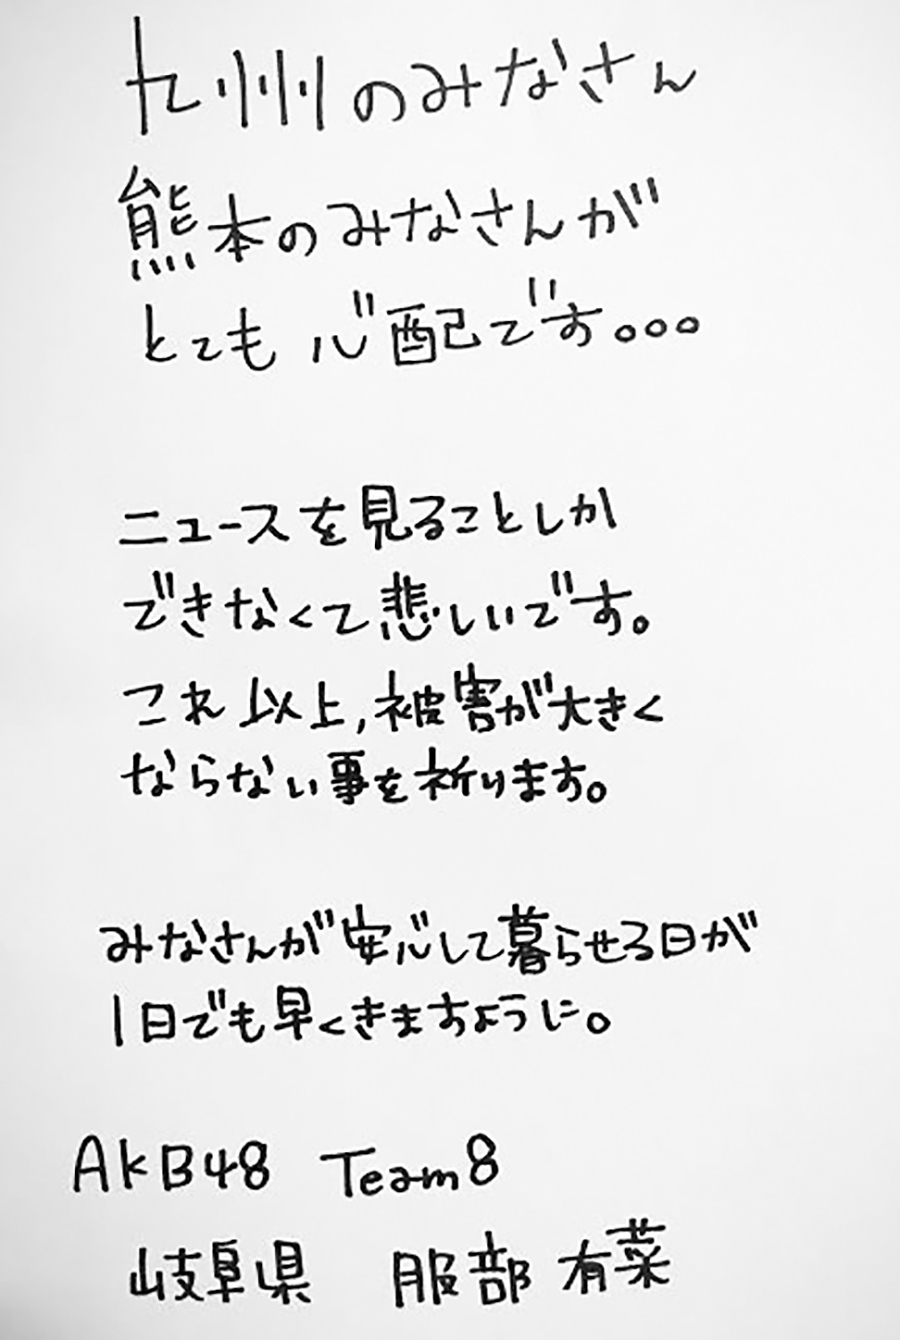 九州のみなさん
熊本のみなさんが
とても心配です。。。
ニュースを見ることしか
できなくて悲しいです。
これ以上,被害が大きく
ならない事を祈ります。
みなさんが安心して暮らせる日が
1日でも早くきますように。
AKB48 Team8
岐阜県 服部有菜